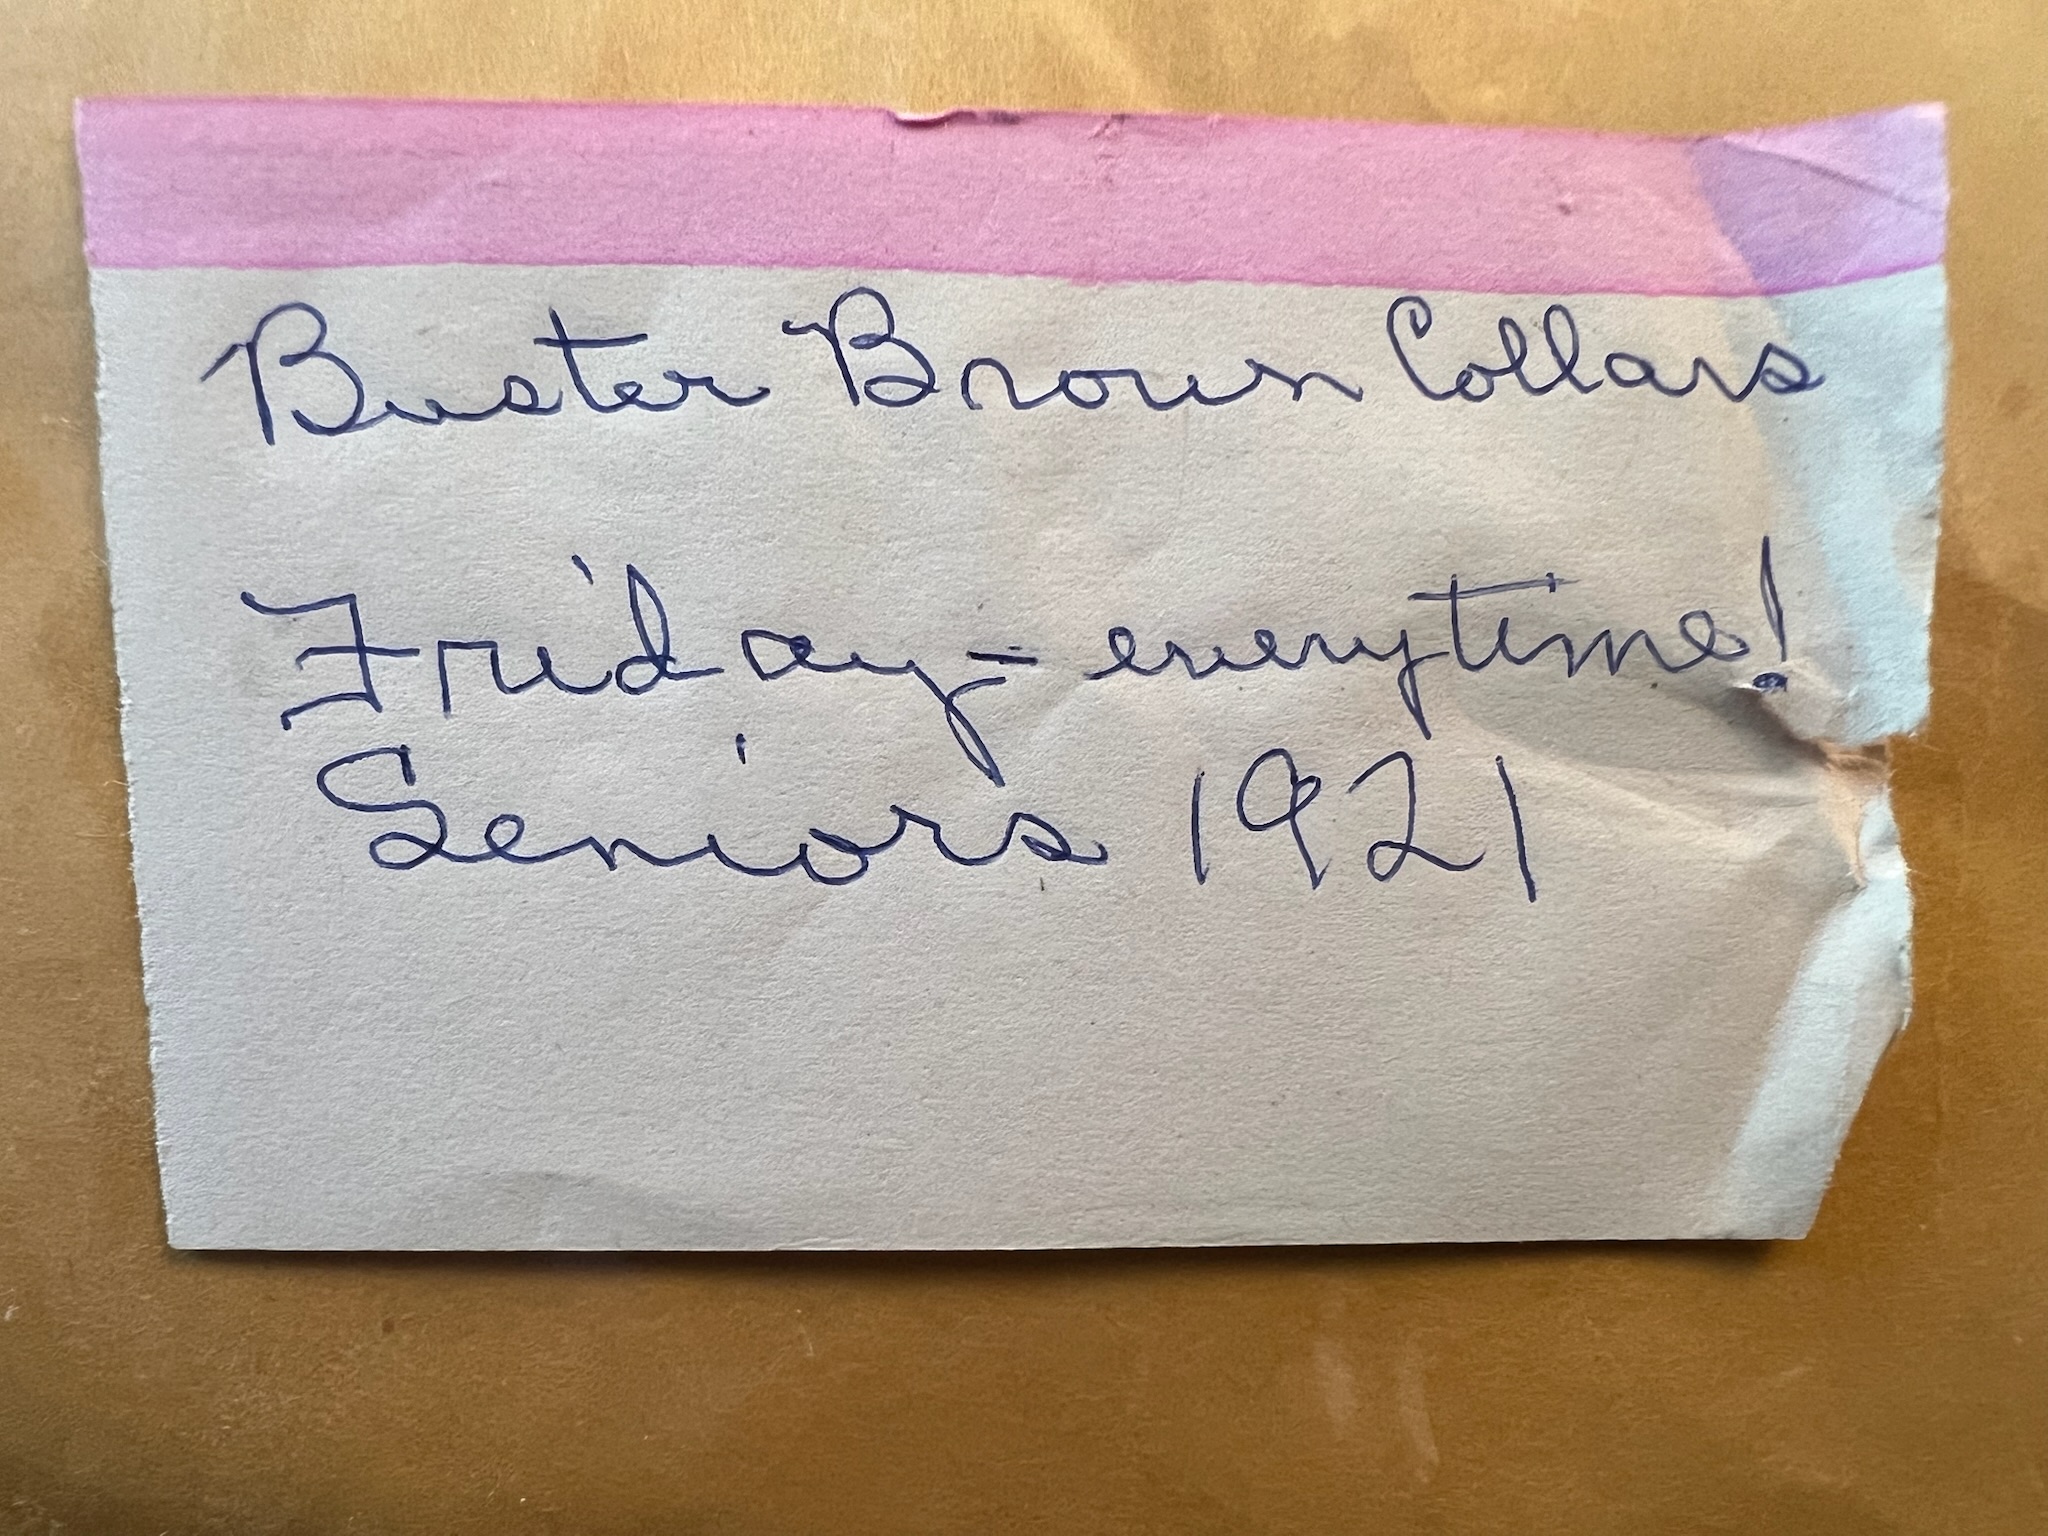 Buster Brown Collars
Friday - everytime!
Seniors 1921